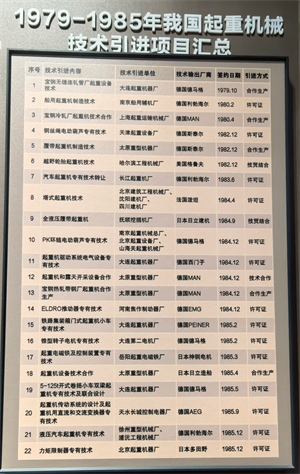 1979-1985年我国起重机械
技术引进项目汇总
序号 技术引进内容 技术引进单位 技术输出厂商 签约日期 引进方式
1 宝钢无缝连轧管厂起重设备技术 大连起重机器厂 德国德马格 1979.10 合作生产
2 船用起重机制造技术 南京船用辅机厂 德国利勃海尔 1980.2 许可证
3 宝钢冷轧厂起重机技术合作 上海起重运输机械厂 德国MAN 1980.4 合作生产
4 钢丝绳电动葫芦专有技术 天津起重设备厂 德国斯泰尔 1982.12 许可证
5 履带起重机制造技术 太原重型机器厂 德国斯泰尔 1982.12 合作生产
6 越野轮胎起重机技术 哈尔滨工程机械厂 美国格鲁夫 1982.12 技贸结合
7 汽车起重机专有技术转让 长江起重机厂 德国利勃海尔 1983.6 许可证
8 塔式起重机技术 北京建筑工程机械厂、
沈阳建机厂、
四川建机厂 法国波坦 1984.4 许可证
9 全液压履带起重机 抚顺挖掘机厂 日本日立建机 1984.9 技贸结合
10 PK环链电动葫芦专有技术 南京起重机械总厂、
北京起重设备厂、
山海关起重机械厂 德国德马格 1984.12 许可证
11 起重机驱动系统电气设备专有技术 大连起重机器厂 德国西门子 1984.12 许可证
12 起重机和露天开采设备合作 太原重型机器厂 德国MAN 1984.12 技术合作
13 宝钢热轧带钢厂起重机成套合作 太原重型机器厂 德国MAN 1984.12 合作生产
14 ELDRO推动器专有技术 河南焦作制动器厂 德国EMG 1984.12 许可证
15 铁路集装箱门式起重机小车专有技术 大连起重机器厂 德国PEINER 1985.2 许可证
16 锥型转子电机专有技术 大连第二电机厂 德国德马格 1985.2 许可证
17 起重电磁铁及控制装置专有技术 岳阳起重电磁铁厂 日本神钢电机 1985.3 许可证
18 起重机设备技术合作 太原重型机器厂 日本日立造船 1985.4 合作生产
19 5-125t开式卷扬小车双梁起重机专有技术及联合设计 大连起重机器厂 德国德马格 1985.5 许可证
20 起重机传动系统的设计及起重机用直流和交流变频器专有技术 天水长城控制电器厂 德国AEG 1985.9 许可证
21 液压汽车起重机专有技术 徐州重型机械厂、
浦沅工程机械厂 德国利勃海尔 1985.12 许可证
22 力矩限制器专有技术 北京起重机器厂 日本多田野 1985.12 许可证